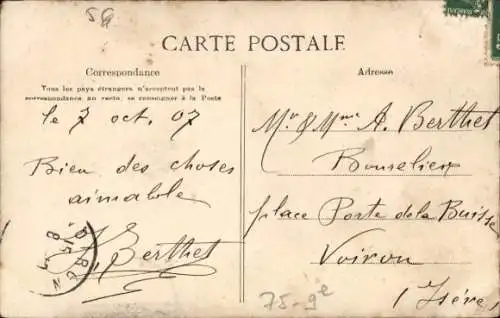 58
CARTE POSTALE
Correspondance
Tous les pays étrangers n'acceptent pas la
correspondance au recto, se renseigner à la Poste
le 7 oct. 07
Bien des choses
aimable
Berthet
Adresse
Mr & Mme A. Berthet
Bourelier
place Porte de la Buisse
Voiron
(Isère)
75-9e